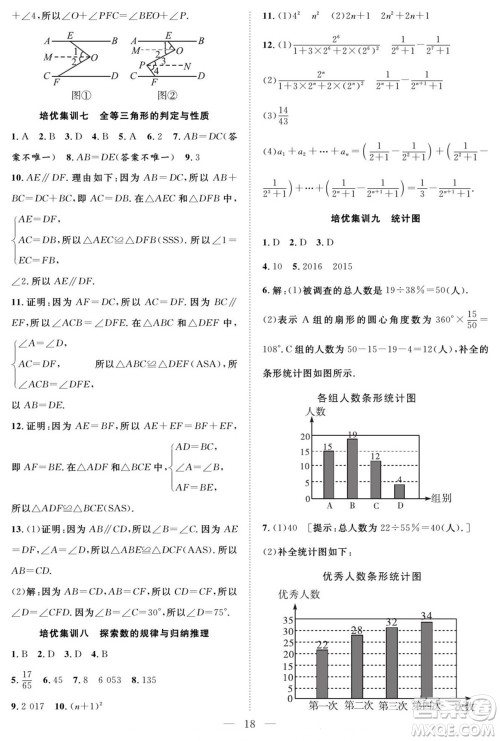 +∠4,所以∠O+∠PFC=∠BEO+∠P.
A E B
M 1 2 O
C F D
图①
A E B
M 1 2 O
P 3 4 N
C F D
图②
培优集训七 全等三角形的判定与性质
1. A 2. B 3. D 4. A 5. A 6. 2 7. AB=DC(答
案不唯一) 8. AB=DE(答案不唯一) 9. 3
10. AE∥DF. 理由如下:因为 AB=DC,所以 AB+
BC=DC+BC,即 AC=DB. 在△AEC 和△DFB
中,
AE=DF,
EC=FB,所以△AEC≌△DFB(SSS). 所以∠A=
AC=DB,
∠2. 所以 AE∥DF.
11. 证明:因为 AF=DC,所以 AC=DF. 因为 BC∥
EF,所以∠ACB=∠DFE. 在△ABC 和△DEF 中,
∠A=∠D,
AC=DF, 所以△ABC≌△DEF(ASA),所以
∠ACB=∠DFE,
AB=DE.
12. 证明:因为 AE=BF,所以 AE+EF=BF+EF,
即 AF=BE. 在△ADF 和△BCE 中,
AD=BC,
∠A=∠B,
AF=BE,
所以△ADF≌△BCE(SAS),所以 DF=CE.
13. (1)证明:因为 AB∥CD,所以∠B=∠C. 因为
AE=DF,∠A=∠D,所以△ABE≌△DCF(AAS).
所以 AB=CD.
(2)解:因为 AB=CD,AB=CF,所以 CD=CF,所
以∠CFD=∠D. 因为∠C=∠B=30°,所以∠D=75°.
培优集训八 探索数的规律与归纳推理
1. B 2. D 3. D 4. B
5. 17/65 6. 45 7. 8 6 053 8. 135
9. 2 017 10. (n+1)²
11. (1)4² n² (2)2n+1
12. (1) 2⁶/(1+3×2⁶+2×(2⁶)²) 1/(2⁶+1)-1/(2⁷+1)
(2) 2ⁿ/(1+3×2ⁿ+2×(2ⁿ)²) 1/(2ⁿ+1)-1/(2ⁿ⁺¹+1)
(3) 14/43
(4)a₁+a₂+…+aₙ=1/(2¹+1)-1/(2²+1)+1/(2²+1)-
1/(2³+1)+…+1/(2ⁿ+1)-1/(2ⁿ⁺¹+1)=1/3-1/(2ⁿ⁺¹+1).
培优集训九 统计图
1. D 2. D 3. D
4. 10 5. 2016 2015
6. 解:(1)被调查的总人数是 19÷38%=50(人).
(2)表示 A 组的扇形的圆心角度数为 360°×15/50=
108°,C 组的人数为 50-15-19-4=12(人),补全的
条形统计图如图所示.
各组人数条形统计图
人数
20
15
10
5
0
15 19 12 4
A B C D 组别
7. (1)40 [提示:总人数是 22÷55%=40(人).]
(2)补全统计图如下:
优秀人数条形统计图
优秀人数
35
30
25
20
15
10
5
0
22 28 32 34
第一次 第二次 第三次 第四次 次数
18